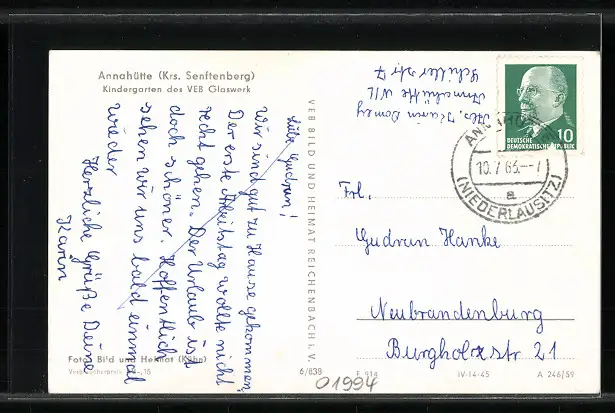 Annahütte (Krs. Senftenberg)
Kindergarten des VEB Glaswerk
Liebe Gudrun!
Wir sind gut zu Hause gekommen,
Der erste Arbeitstag wollte nicht
recht gehen. Der Urlaub ist
doch schöner. Hoffentlich
sehen wir uns bald einmal
wieder
Herzliche Grüße Deine
Karin
Foto: Bild und Heimat (Kühn)
6/838
VEB BILD UND HEIMAT REICHENBACH i. V.
Karin
Annahütte N/L
Schillerstr. 7
10
DEUTSCHE
DEMOKRATISCHE REPUBLIK
10.7.63.--7
a
(NIEDERLAUSITZ)
Frl.
Gudrun Hanke
Neubrandenburg
Burgholzstr 21
01994
IV-14-45
A 246/59